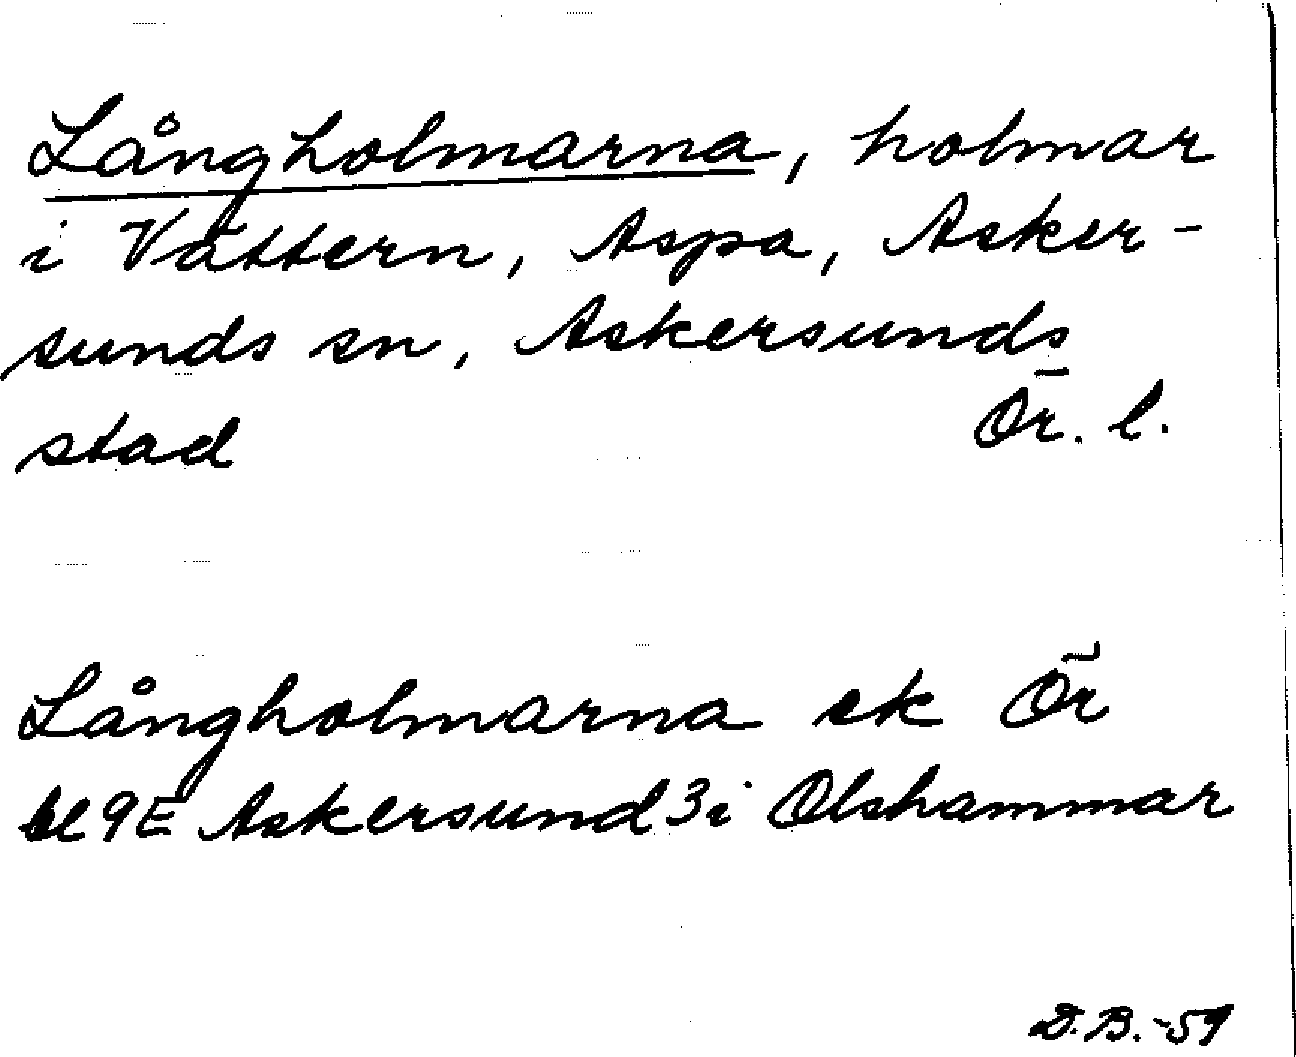 Långholmarna, holmar
i Vättern, Aspa, Asker-
sunds sn, Askersunds
stad Ör. l.
Långholmarna ek Ör
bl 9E Askersund 3i Olshammar
D.B.-59